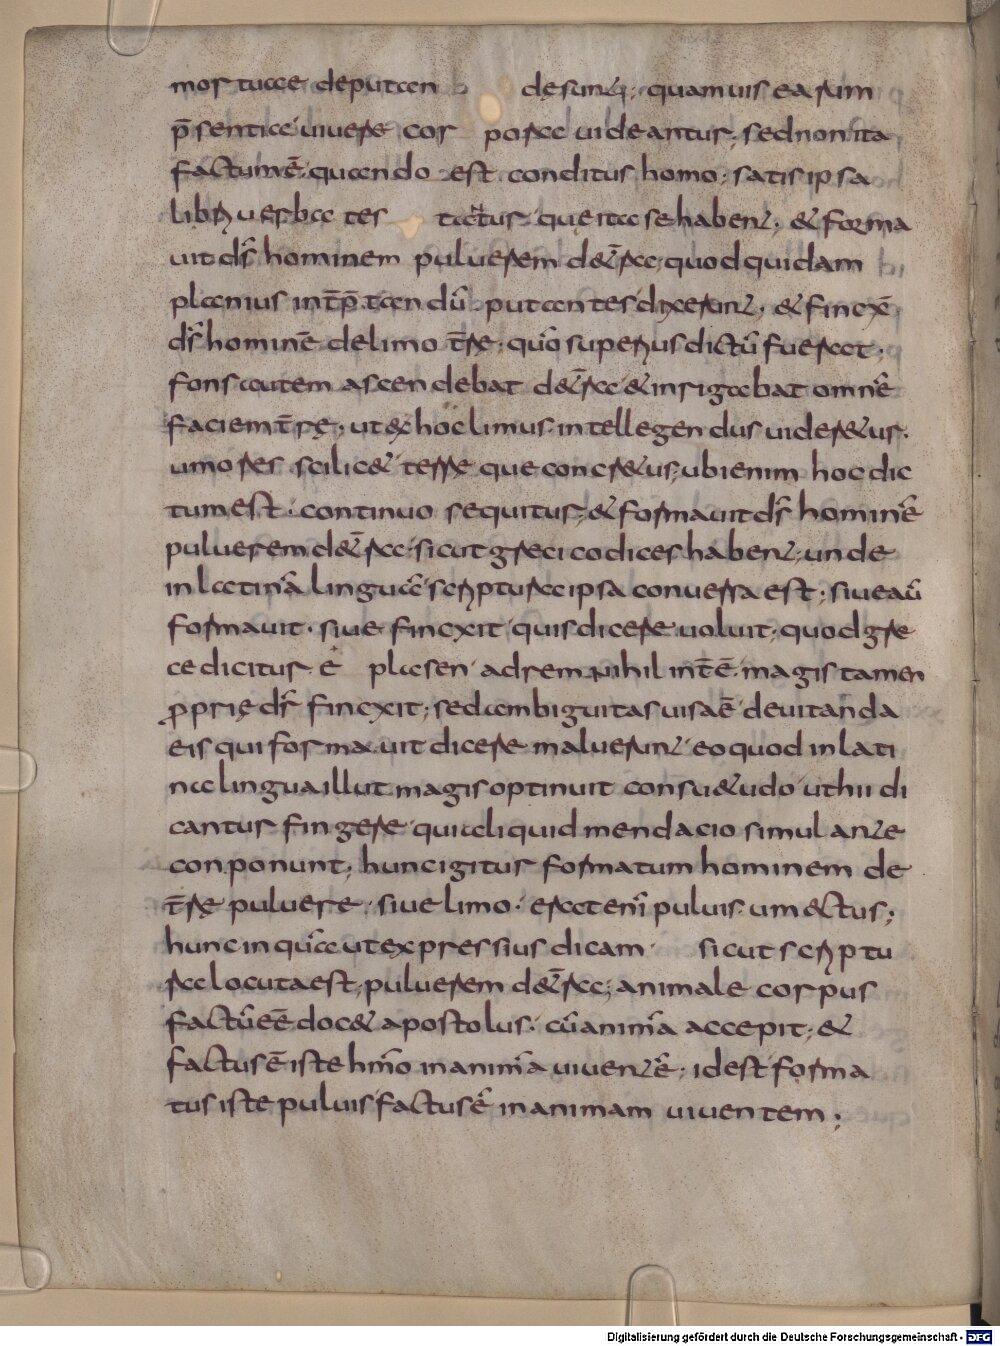 mortuae deputan    dę sunt; quamuis earum
p̄sentia uiuere cor    pora uideantur; sed non ita
factum ē quando est conditus homo; satis ipsa
libri uerba tes    tantur que ita se habent; & forma
uit ds̄ hominem puluerem de t̄ra; quod quidam
planius int̄p̄tandū putantes dixerunt; & finxē
ds̄ hominē de limo t̄rę; quō superius dictū fuerat;
fons autem ascendebat de t̄ra & inrigabat omnē
faciem t̄rę; ut ex hoc limus intellegendus uider&ur.
umores scilic& terreque concr&us; ubi enim hoc dic
tum est. continuo sequitur; & formauit ds̄ hominē
puluerem de t̄ra. sicut greci codices habent; unde
in latinā linguā scriptura ipsa conuersa est; siue aū
formauit. siue finxit quis dicere uoluit; quod gre
ce dicitur e    plasen ad rem nihil int̄ē. magis tamen
proprię ds̄ finxit; sed ambiguitas uisa ē deuitanda
eis qui formauit dicere maluerunt eo quod in lati
na lingua illut magis optinuit consu&udo ut hii di
cantur fingere qui aliquid mendacio simulante
conponunt; hunc igitur formatum hominem de
t̄rę puluere. siue limo. erat enī puluis um&ctus;
hunc inquā ut expressius dicam    sicut scriptu
ra locuta est; puluerem de t̄ra; animale corpus
factū eē doc& apostolus. cū animā accepit; &
factus ē iste homō in animā uiuentē; id est forma
tus iste puluis factus ē in animam uiuentem;
Digitalisierung gefördert durch die Deutsche Forschungsgemeinschaft - DFG